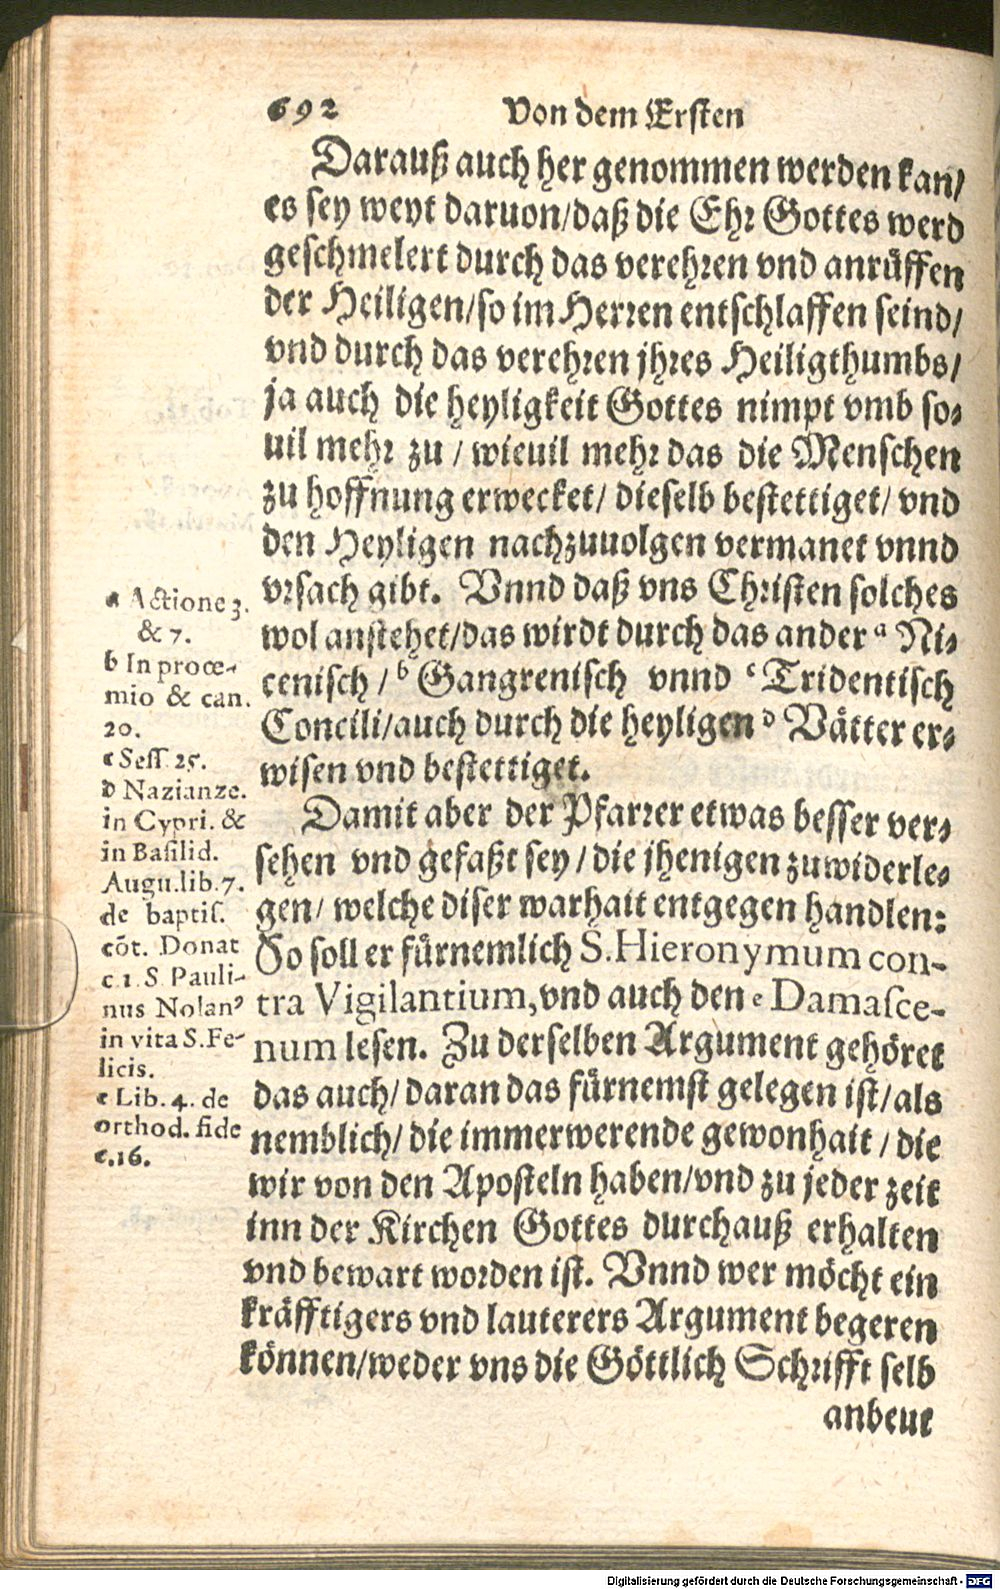 692 Von dem Ersten
Darauß auch her genommen werden kan/
es sey weyt daruon/daß die Ehr Gottes werd
geschmelert durch das verehren vnd anrüffen
der Heiligen/so im Herren entschlaffen seind/
vnd durch das verehren jhres Heiligthumbs/
ja auch die heyligkeit Gottes nimpt vmb so-
uil mehr zu / wieuil mehr das die Menschen
zu hoffnung erwecket/ dieselb bestettiget/ vnd
den Heyligen nachzuuolgen vermanet vnnd
vrsach gibt. Vnnd daß vns Christen solches
wol anstehet/das wirdt durch das ander a Ni-
cenisch / b Gangrenisch vnnd c Tridentisch
Concili/auch durch die heyligen d Vätter er-
wisen vnd bestettiget.
Damit aber der Pfarrer etwas besser ver-
sehen vnd gefaßt sey / die jhenigen zuwiderle-
gen/ welche diser warhait entgegen handlen:
So soll er fürnemlich S. Hieronymum con-
tra Vigilantium, vnd auch den e Damasce-
num lesen. Zu derselben Argument gehöret
das auch/ daran das fürnemst gelegen ist/als
nemblich/ die immerwerende gewonhait / die
wir von den Aposteln haben/vnd zu jeder zeit
inn der Kirchen Gottes durchauß erhalten
vnd bewart worden ist. Vnnd wer möcht ein
kräfftigers vnd lauterers Argument begeren
können/weder vns die Göttlich Schrifft selb
anbeut
a Actione 3.
& 7.
b In prooe-
mio & can.
20.
c Sess. 25.
d Nazianze.
in Cypri. &
in Basilid.
Augu.lib.7.
de baptis.
cōt. Donat
c 1. S Pauli-
nus Nolanꝰ
in vita S.Fe-
licis.
e Lib. 4. de
orthod. fide
c.16.
Digitalisierung gefördert durch die Deutsche Forschungsgemeinschaft - DFG